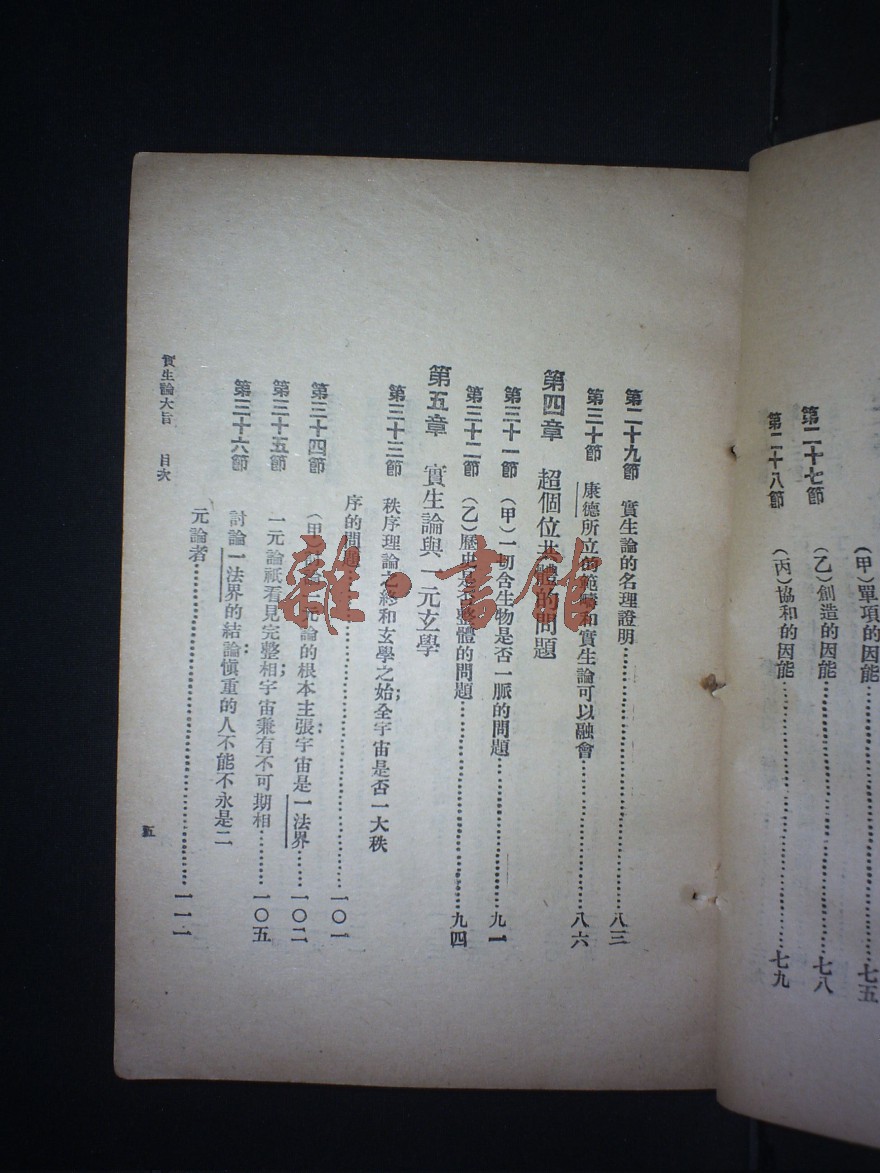 (甲)單項的因能………七五
第二十七節 (乙)創造的因能………七八
第二十八節 (丙)協和的因能………七九
第二十九節 實生論的名理證明………八三
第三十節 康德所立的範疇和實生論可以融會………八六
第四章 超個位共體的問題
第三十一節 (甲)一切含生物是否一脈的問題………九一
第三十二節 (乙)歷史是否整體的問題………九四
第五章 實生論與一元玄學
第三十三節 秩序理論之終和玄學之始;全宇宙是否一大秩
序的問題………一〇一
第三十四節 (甲)一元論的根本主張:宇宙是一法界………一〇二
第三十五節 一元論祇看見完整相;宇宙兼有不可期相………一〇五
第三十六節 討論一法界的結論:慎重的人不能不永是二
元論者………一一二
實生論大旨 目次
五
雜·書館